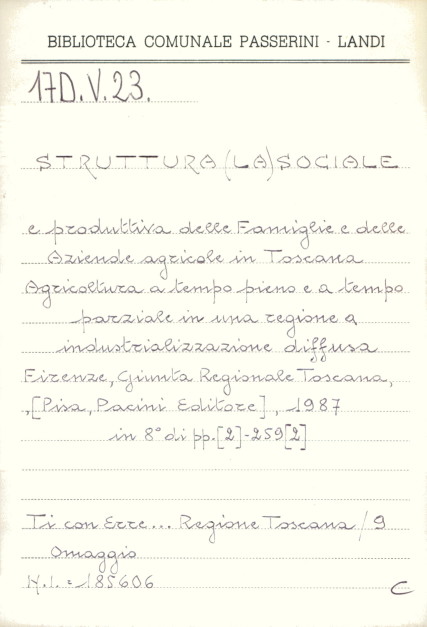 BIBLIOTECA COMUNALE PASSERINI - LANDI
17D.V.23.
STRUTTURA (LA) SOCIALE
e produttiva delle Famiglie e delle
Aziende agricole in Toscana
Agricoltura a tempo pieno e a tempo
parziale in una regione a
industrializzazione diffusa
Firenze, Giunta Regionale Toscana,
,[Pisa, Pacini Editore], 1987
in 8° di pp.[2]-259[2]
Ti con Erre... Regione Toscana / 9
Omaggio
N.I. = 185606
C